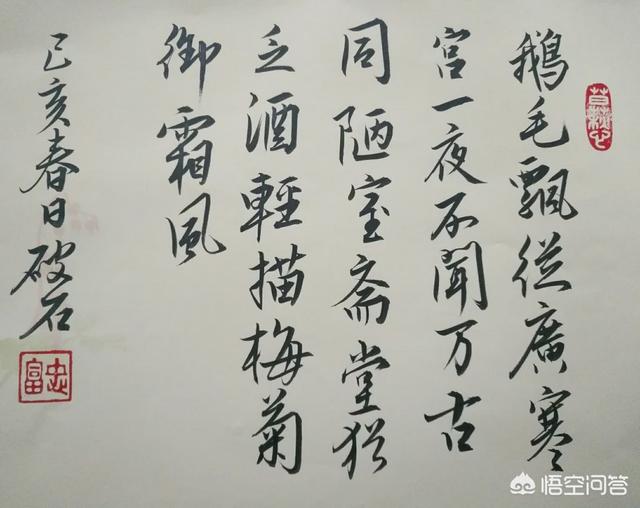 鵝毛飄從廣寒
宮一夜不聞万古
同陋室斋堂犹
乏酒輕描梅菊
御霜風
己亥春日破石
忠富
悟空问答